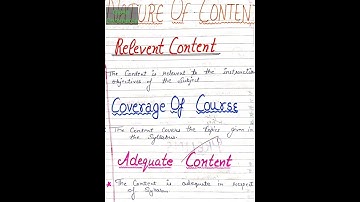 NATURE OF CONTEN
Relevent Content
The Content is relevent to the instruction
objectives of the Subject
Coverage Of Course
The Content covers the topics given in
the Syllabus
Adequate Content
* The Content is adequate in respect
of Syllabus